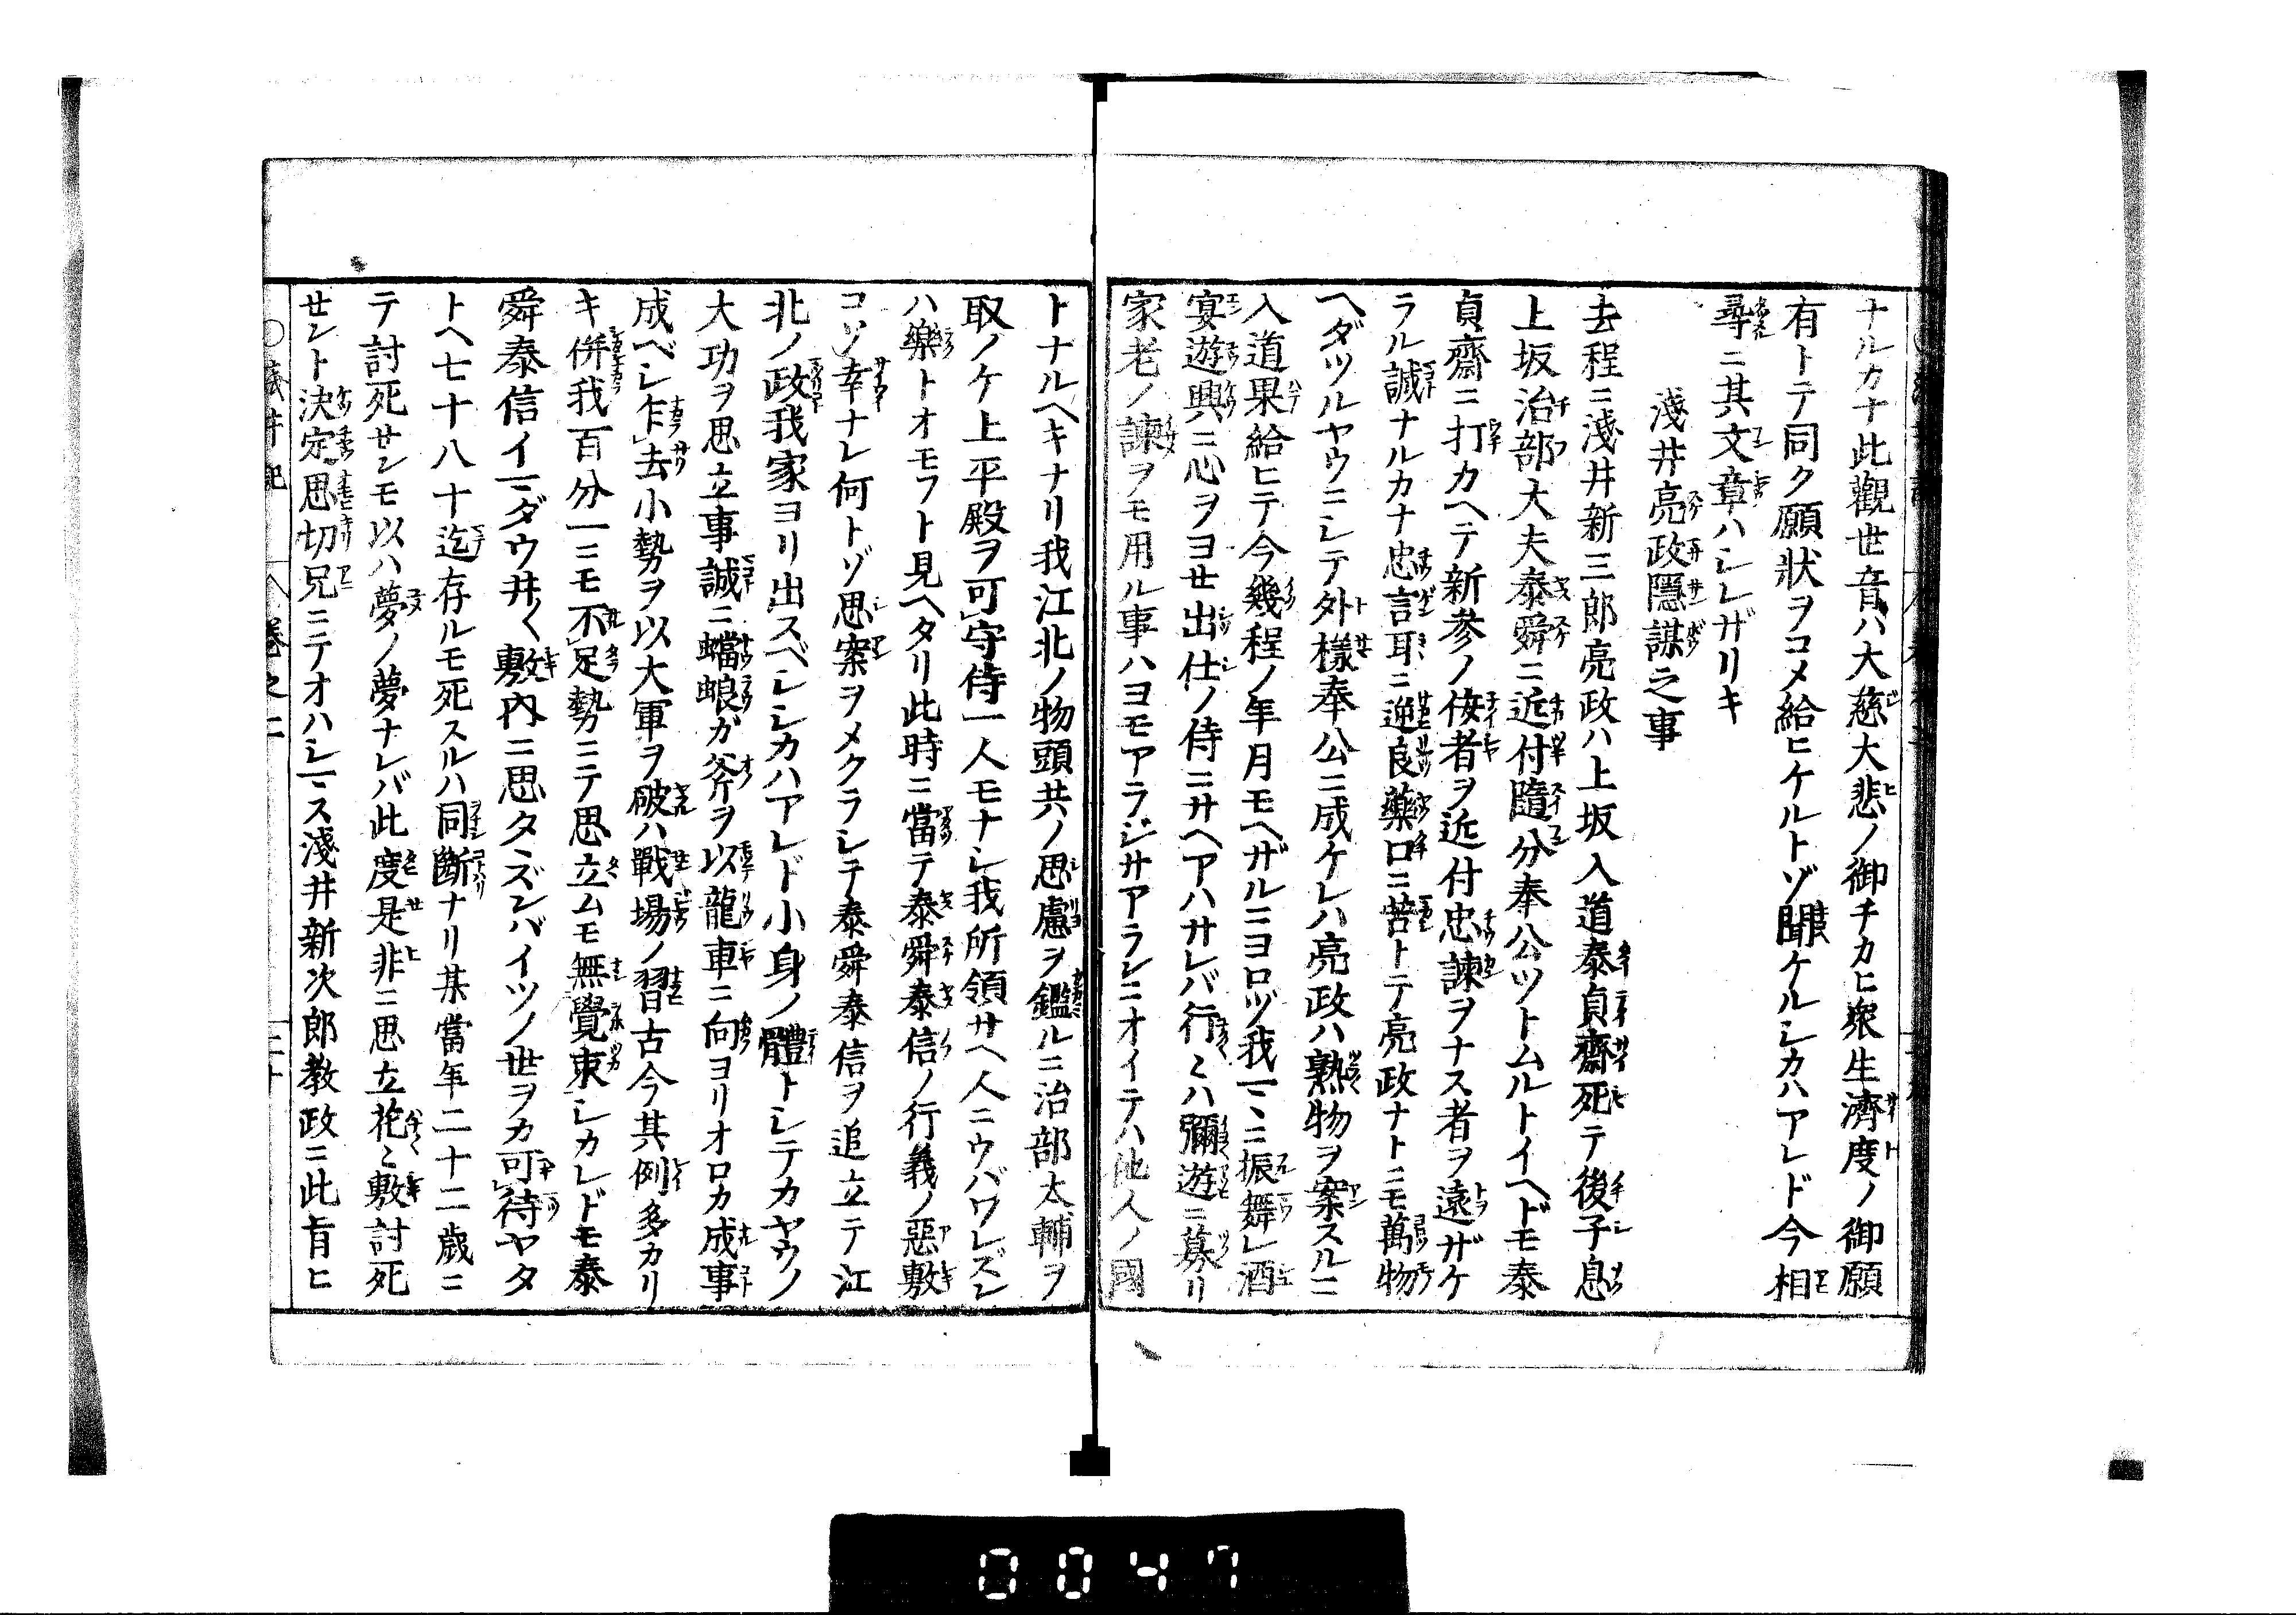 ナルカナ此觀世音ハ大慈大悲ノ御チカヒ衆生濟度ノ御願
有トテ同ク願狀ヲコメ給ヒケルトゾ聞ケルシカハアレド今相
尋ニ其文章ハシレザリキ
淺井亮政隱謀之事
去程ニ淺井新三郎亮政ハ上坂入道泰貞齋死テ後子息
上坂治部大夫泰舜ニ近付隨分奉公ツトムルトイヘドモ泰
貞齋ニ打カヘテ新參ノ侫者ヲ近付忠諫ヲナス者ヲ遠ザケ
ラル誠ナルカナ忠言耳ニ逆良藥口ニ苦トテ亮政ナトニモ萬物
ヘダツルヤウニシテ外樣奉公ニ成ケレハ亮政ハ熟物ヲ案スルニ
入道果給ヒテ今幾程ノ年月モヘザルニヨロヅ我マヽニ振舞レ酒
宴遊興ニ心ヲヨセ出仕ノ侍ニサヘアハサレバ行〻ハ彌遊ニ募リ
家老ノ諫ヲモ用ル事ハヨモアラジサアランニオイテハ他人ノ國
トナルヘキナリ我江北ノ物頭共ノ思慮ヲ鑑ルニ治部太輔ヲ
取ノケ上平殿ヲ可守侍一人モナシ我所領サヘ人ニウバワレズン
ハ樂トオモフト見ヘタリ此時ニ當テ泰舜泰信ノ行義ノ惡敷
コソ幸ナレ何トゾ思案ヲメクラシテ泰舜泰信ヲ追立テ江
北ノ政我家ヨリ出スベシシカハアレド小身ノ體トシテカヤウノ
大功ヲ思立事誠ニ蟷蜋ガ斧ヲ以龍車ニ向ヨリオロカ成事
成ベシ乍去小勢ヲ以大軍ヲ破ハ戰場ノ習古今其例多カリ
キ併我百分一ニモ不足勢ニテ思立ムモ無覺束シカレドモ泰
舜泰信イマダウ井〱敷內ニ思タヽズンバイツノ世ヲカ可待ヤタ
トヘ七十八十迄存ルモ死スルハ同斷ナリ某當年二十二歲ニ
テ討死サンモ以ハ夢ノ夢ナレバ此度是非ニ思立花〻敷討死
セント決定思切兄ニテオハシマス淺井新次郎教政ニ此旨ヒ
淺井記 卷之二
0047